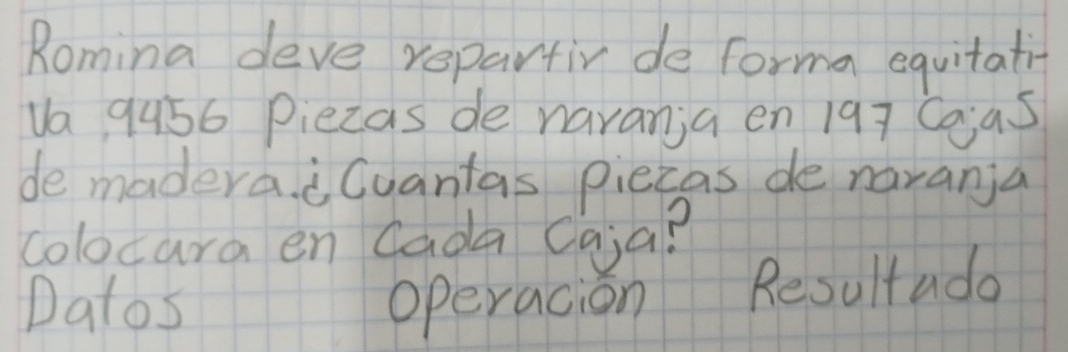 Romina deve repartir de forma equitati-
va 9456 piezas de naranja en 197 cajas
de madera.¿Cuantas piezas de naranja
colocara en cada caja?
Datos Operación Resultado